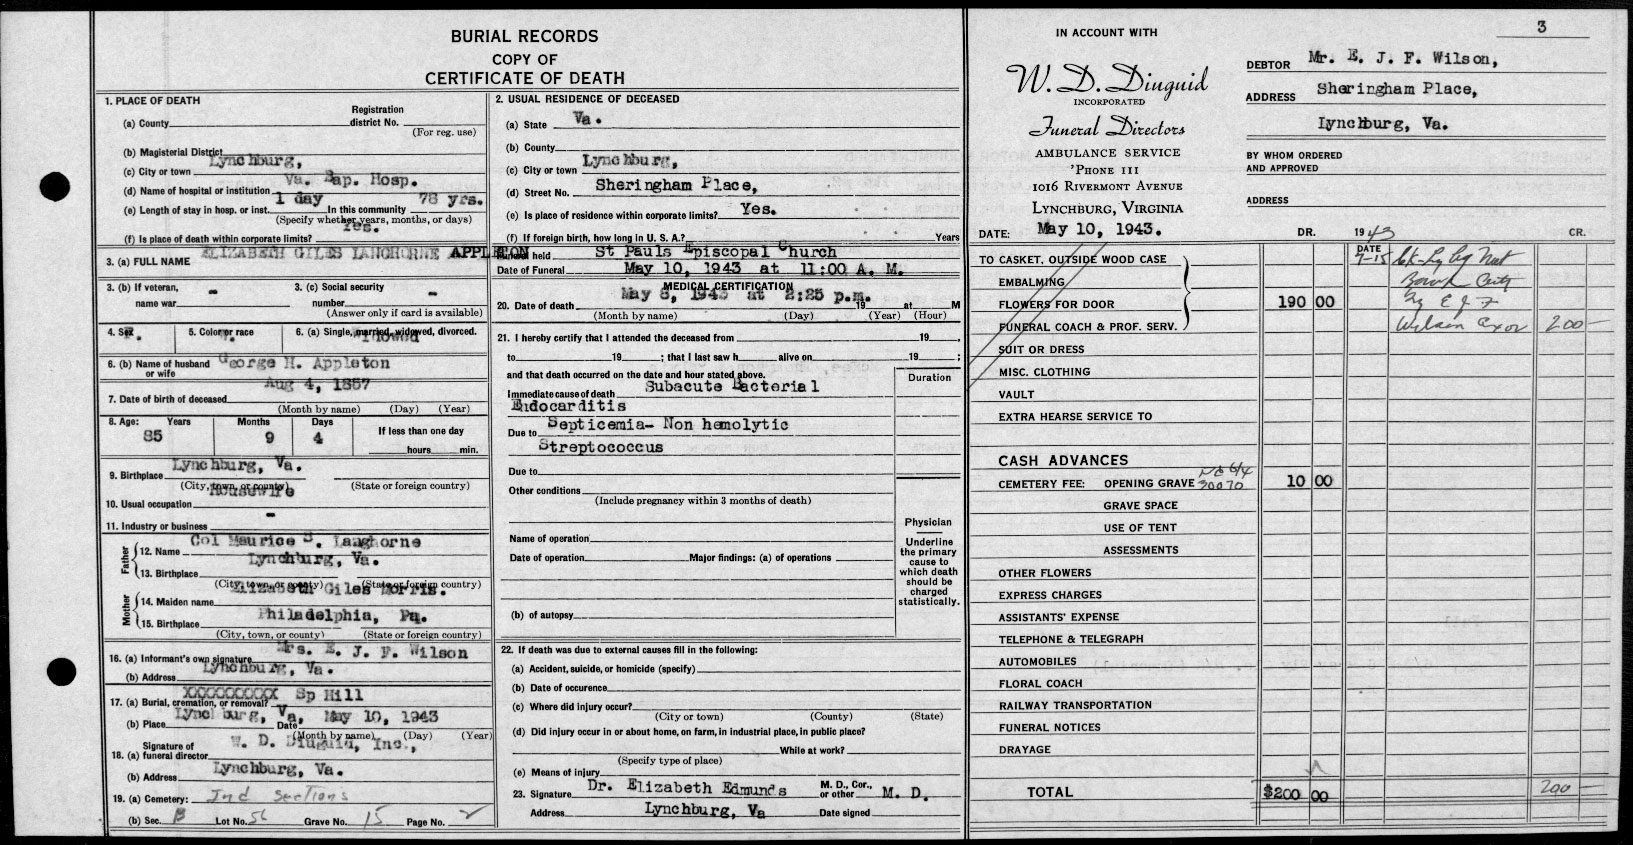 BURIAL RECORDS
COPY OF
CERTIFICATE OF DEATH
1. PLACE OF DEATH
Registration
(a) County district No.
(For reg. use)
(b) Magisterial District
Lynchburg,
(c) City or town
Va. Bap. Hosp.
(d) Name of hospital or institution
1 day 78 yrs.
(e) Length of stay in hosp. or inst. In this community
(Specify whether years, months, or days)
Yes.
(f) Is place of death within corporate limits?
ELIZABETH GILES LANGHORNE APPLETON
3. (a) FULL NAME
3. (b) If veteran, 3. (c) Social security
name war - number -
(Answer only if card is available)
4. Sex F. 5. Color or race 6. (a) Single, married, widowed, divorced.
6. (b) Name of husband George H. Appleton
or wife
Aug 4, 1857
7. Date of birth of deceased
(Month by name) (Day) (Year)
8. Age: Years Months Days If less than one day
85 9 4
hours min.
Lynchburg, Va.
9. Birthplace
(City, town, or county) (State or foreign country)
Housewife
10. Usual occupation
-
11. Industry or business
Father
Col Maurice S. Langhorne
12. Name
Lynchburg, Va.
13. Birthplace
(City, town, or county) (State or foreign country)
Mother
Elizabeth Giles Morris.
14. Maiden name
Philadelphia, Pa.
15. Birthplace
(City, town, or county) (State or foreign country)
Mrs. E. J. F. Wilson
16. (a) Informant's own signature
Lynchburg, Va.
(b) Address
XXXXXXXXXX Sp Hill
17. (a) Burial, cremation, or removal?
Lynchburg, Va, May 10, 1943
(b) Place Date
(Month by name) (Day) (Year)
Signature of W. D. Diuguid, Inc.,
18. (a) funeral director
Lynchburg, Va.
(b) Address
19. (a) Cemetery: Ind Sections
(b) Sec. B Lot No. 56 Grave No. 15 Page No.
2. USUAL RESIDENCE OF DECEASED
(a) State Va.
(b) County
Lynchburg,
(c) City or town
Sheringham Place,
(d) Street No.
(e) Is place of residence within corporate limits? Yes.
(f) If foreign birth, how long in U. S. A.? Years
Funeral held St Pauls Episcopal Church
Date of Funeral May 10, 1943 at 11:00 A. M.
MEDICAL CERTIFICATION
May 8, 1943 at 2:25 p.m.
20. Date of death 19 at M
(Month by name) (Day) (Year) (Hour)
21. I hereby certify that I attended the deceased from 19 ,
to 19 ; that I last saw h alive on 19 ;
and that death occurred on the date and hour stated above. Duration
Subacute Bacterial
Immediate cause of death
Endocarditis
Septicemia- Non hemolytic
Due to
Streptococcus
Due to
Other conditions
(Include pregnancy within 3 months of death)
Physician
Underline
the primary
cause to
which death
should be
charged
statistically.
Name of operation
Date of operation Major findings: (a) of operations
(b) of autopsy
22. If death was due to external causes fill in the following:
(a) Accident, suicide, or homicide (specify)
(b) Date of occurence
(c) Where did injury occur?
(City or town) (County) (State)
(d) Did injury occur in or about home, on farm, in industrial place, in public place?
While at work?
(Specify type of place)
(e) Means of injury
Dr. Elizabeth Edmunds M. D., Cor.,
23. Signature or other M. D.
Lynchburg, Va
Address Date signed
3
IN ACCOUNT WITH
W. D. Diuguid
INCORPORATED
Funeral Directors
AMBULANCE SERVICE
'PHONE 111
1016 RIVERMONT AVENUE
LYNCHBURG, VIRGINIA
DEBTOR Mr. E. J. F. Wilson,
ADDRESS Sheringham Place,
Lynchburg, Va.
BY WHOM ORDERED
AND APPROVED
ADDRESS
DATE: May 10, 1943. DR. 1943 CR.
TO CASKET, OUTSIDE WOOD CASE
DATE
7-15 Ck-Ly Nat
EMBALMING
FLOWERS FOR DOOR 190 00
By E J F
FUNERAL COACH & PROF. SERV. Wilson Exor 200-
SUIT OR DRESS
MISC. CLOTHING
VAULT
EXTRA HEARSE SERVICE TO
CASH ADVANCES
No 6/4
CEMETERY FEE: OPENING GRAVE 30070 10 00
GRAVE SPACE
USE OF TENT
ASSESSMENTS
OTHER FLOWERS
EXPRESS CHARGES
ASSISTANTS' EXPENSE
TELEPHONE & TELEGRAPH
AUTOMOBILES
FLORAL COACH
RAILWAY TRANSPORTATION
FUNERAL NOTICES
DRAYAGE
TOTAL $200 00 200-